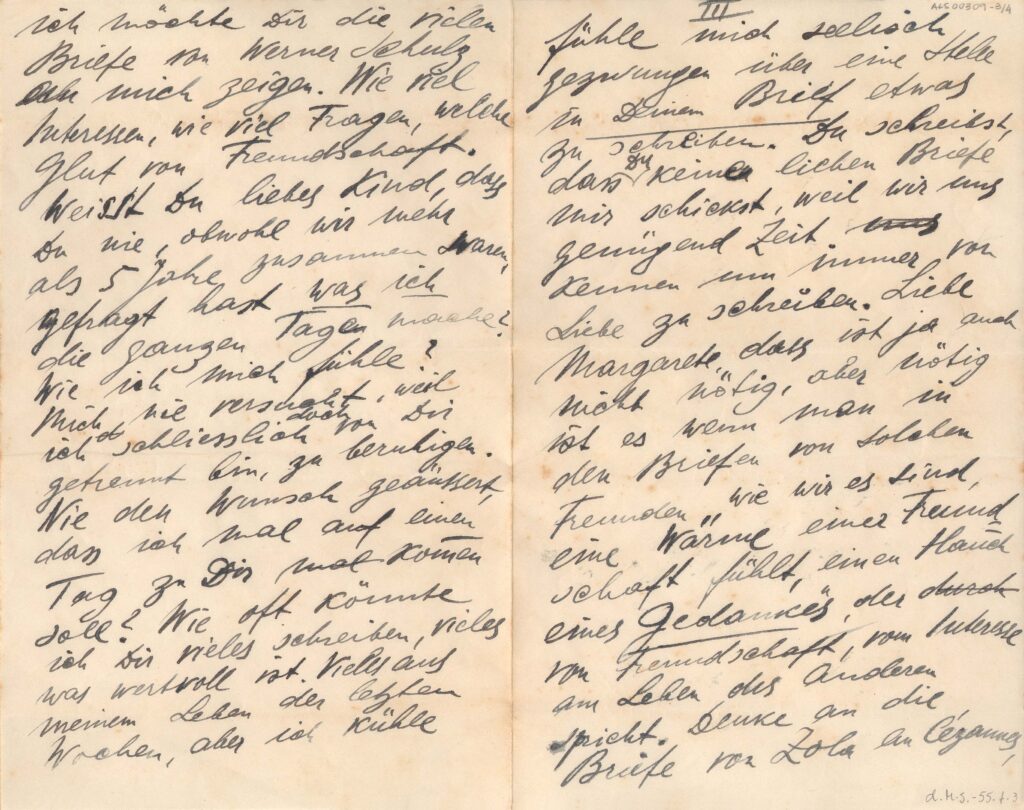 ich möchte Dir die vielen
Briefe von Werner Schulz
an mich zeigen. Wie viel
Interessen, wie viel Fragen, welche
Glut von Freundschaft.
Weisst Du liebes Kind, dass
Du nie, obwohl wir mehr
als 5 Jahre zusammen waren,
gefragt hast was ich
die ganzen Tagen mache?
Wie ich mich fühle?
Mich nie versucht, weil
ich schliesslich doch von Dir
getrennt bin, zu beruhigen.
Nie den Wunsch geäussert,
dass ich mal auf einen
Tag zu Dir mal kommen
soll? Wie oft könnte
ich Dir vieles schreiben, vieles
was wertvoll ist. Vieles aus
meinem Leben der letzten
Wochen, aber ich kühle
ALS 00309-3/4
III
fühle mich seelisch
gezwungen über eine Stelle
in Deinem Brief etwas
zu schreiben. Du schreibst,
dass Du keine lichen Briefe
mir schickst, weil wir uns
genügend Zeit uns
kennen um immer von
Liebe zu schreiben. Liebe
Margarete, dass ist ja auch
nicht nötig, aber nötig
ist es wenn man in
den Briefen von solchen
Freunden, wie wir es sind,
eine Wärme einer Freund
schaft fühlt, einen Hauch
eines Gedankes, der durch
von Freundschaft, vom Interesse
am Leben des Anderen
spricht. Denke an die
Briefe von Zola an Cézanne,
d.M.S.-55.f.3